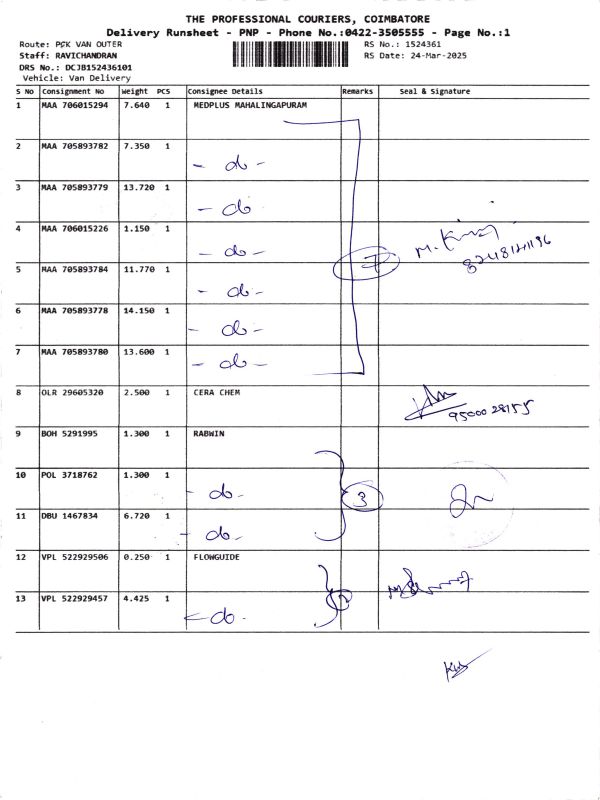 THE PROFESSIONAL COURIERS, COIMBATORE
Delivery Runsheet - PNP - Phone No.:0422-3505555 - Page No.:1
Route: PCK VAN OUTER RS No.: 1524361
Staff: RAVICHANDRAN RS Date: 24-Mar-2025
DRS No.: DCJB152436101
Vehicle: Van Delivery
S No Consignment No Weight PCS Consignee Details Remarks Seal & Signature
1 MAA 706015294 7.640 1 MEDPLUS MAHALINGAPURAM
2 MAA 705893782 7.350 1
- do -
3 MAA 705893779 13.720 1
- do
4 MAA 706015226 1.150 1
- do - 7
5 MAA 705893784 11.770 1
- do -
6 MAA 705893778 14.150 1
- do -
7 MAA 705893780 13.600 1
- do -
8 OLR 29605320 2.500 1 CERA CHEM
9500028155
9 BOH 5291995 1.300 1 RABWIN
10 POL 3718762 1.300 1
- do - 3
11 DBU 1467834 6.720 1
- do -
12 VPL 522929506 0.250 1 FLOWGUIDE
13 VPL 522929457 4.425 1
- do - 2